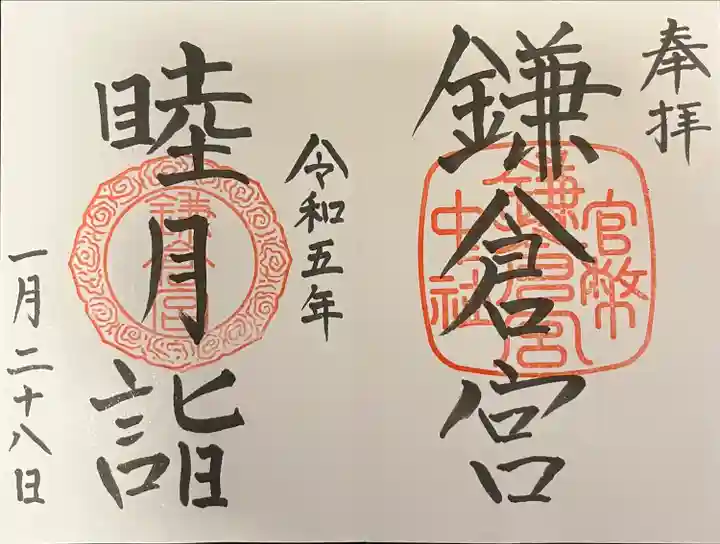 奉拝
鎌倉宮
官幣
鎌倉宮
中社
令和五年
睦月詣
鎌倉宮
一月二十八日